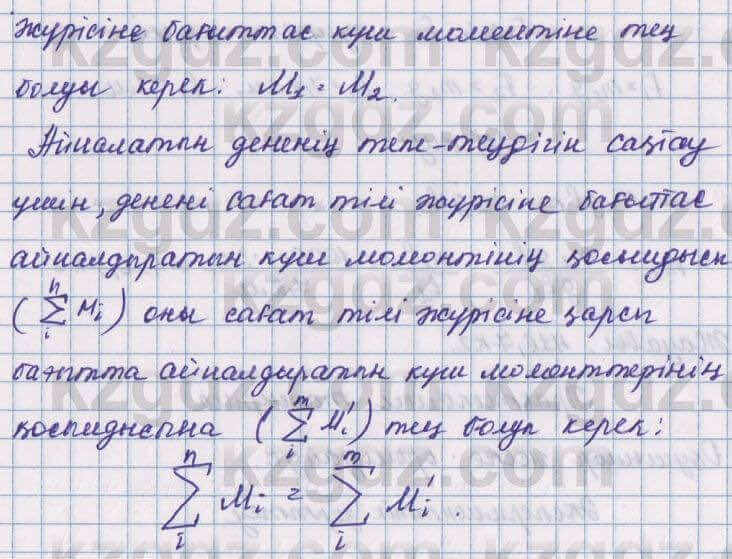 жүрісіне бағыттас күш моментіне тең
болуы керек: M₁ = M₂.
Айналатын дененің тепе-теңдігін сақтау
үшін, денені сағат тілі жүрісіне бағыттас
айналдыратын күш моментінің қосындысы
(∑ⁿᵢ Mᵢ) оны сағат тілі жүрісіне қарсы
бағытта айналдыратын күш моменттерінің
қосындысына (∑ᵐᵢ M'ᵢ) тең болуы керек:
∑ⁿᵢ Mᵢ = ∑ᵐᵢ M'ᵢ.